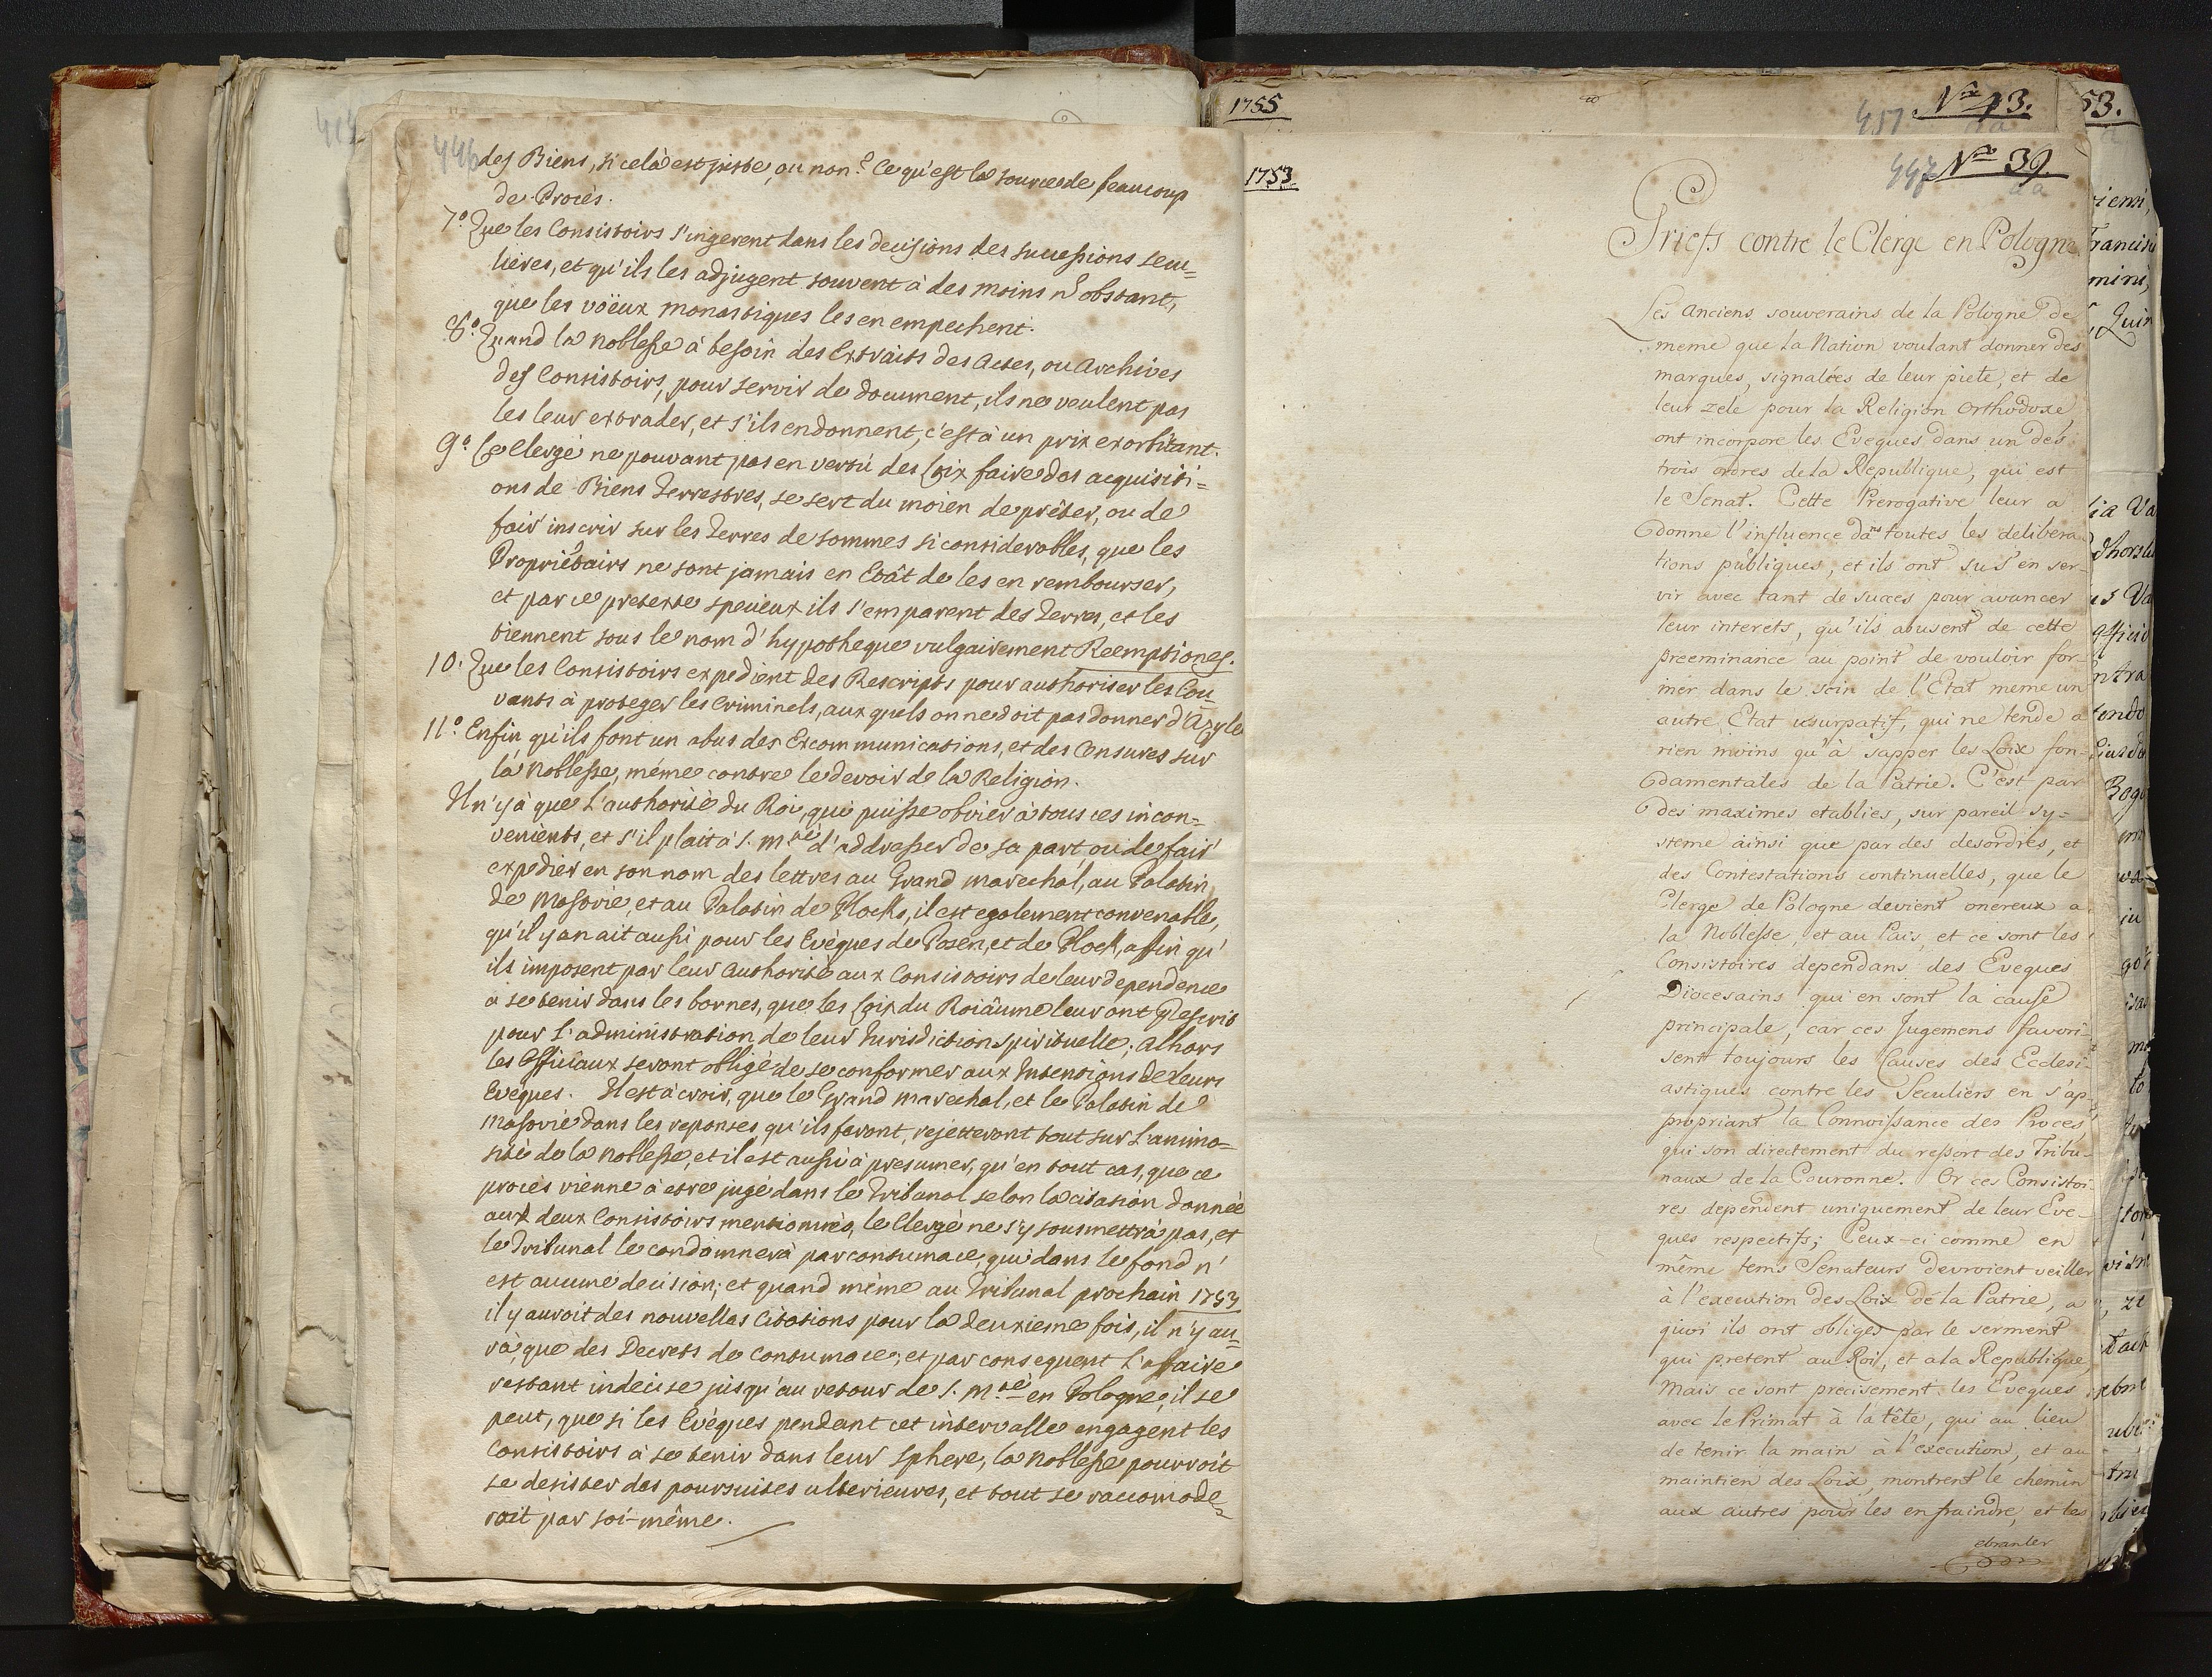 446
des Biens, si celà est juste, ou non? Ce qu'est la source de beaucoup
de Procès.
7.º Que les Consistoirs s'ingerent dans les decisions des successions secu=
lières, et qu'ils les adjugent souvent à des moins n'obstant,
que les vöeux monastiques les en empechent.
8.º Quand la noblesse à besoin des Extraits des Actes, ou Archives
des Consistoirs, pour servir de document, ils ne veulent pas
les leur extrader, et s'ils en donnent, c'est à un prix exorbitant.
9.º Le Clergé ne pouvant pas en vertù des Loix faire des acquisiti=
ons de Biens Terrestres, se sert du moien de prêter, ou de
fair inscrir sur les Terres de sommes si considerables, que les
Propriétairs ne sont jamais en Etât de les en rembourser,
et par ce pretexte specieux ils s'emparent des Terres, et les
tiennent sous le nom d'hypotheque vulgairement Reemptiones.
10. Que les Consistoirs expedient des Rescripts pour authoriser les Cou-
vents à proteger les Criminels, aux quels on ne doit pas donner d'Azyle
11.º Enfin qu'ils font un abus des Excommunications, et des Censures sur
là Noblesse, méme contre le devoir de la Religion.
Il n'y à que L'authorité du Roi, qui puisse obvier à tous ces incon=
venients, et s'il plait à S. M.té d'addresser de sa part, ou de fair
expedier en son nom des lettres au Grand marechal, au Palatin
de Masovie, et au Palatin de Plocko, il est egalement convenable,
qu'il y an ait aussi pour les Evèques de Posen, et de Plock, affin qu'
ils imposent par leur Authorité aux Consistoirs de leur dependence
à se tenir dans les bornes, que les Loix du Roiäume leur ont prescrit
pour l'administration de leur Jurisdiction spirituelle; alhors
les Officiaux seront obligé de se conformer aux Intentions de leurs
Evèques. Il est à croir, que le Grand marechal, et le Palatin de
Masovie dans les reponses qu'ils feront, rejetteront tout sur L'animo=
sité de la noblesse, et il est aussi à presumer, qu'en tout cas, que ce
procès vienne à estre jugé dans le Tribunal selon la citation donnée
aux deux Consistoirs mentionnés, le Clergé ne s'y sousmettrà pas, et
le Tribunal le condamnerà par contumace, qui dans le fond n'
est aucune decision; et quand mème au Tribunal prochain 1753
il y auroit des nouvelles Citations pour la deuxieme fois, il n'y au=
rà, que des Decrets de Contumace, et par consequent L'affaire
restant indecise jusqu'au retour de S. M.té en Pologne, il se
peut, que si les Evèques pendant cet intervalle engagent les
Consistoirs à se tenir dans leur Sphere, la noblesse pourroit
se desister des poursuites ulterieures, et tout se raccomode=
roit par soi-mème.
1755
451
Nro 43.
53.
1753
447
Nro 39.
aa
Griefs contre le Clerge en Pologne
Les Anciens souverains de la Pologne de
meme que la Nation voulant donner des
marques, signalées de leur pieté, et de
leur zele pour la Religion Orthodoxe
ont incorpore les Eveques dans un des
trois ordres de la Republique, qui est
le Senat. Cette Prerogative leur a
donne l'influence dans toutes les delibera-
tions publiques, et ils ont su s'en ser-
vir avec tant de succes pour avancer
leur interets, qu'ils abusent de cette
preeminance au point de vouloir for-
mer dans le sein de l'Etat meme un
autre Etat usurpatif, qui ne tende a
rien moins qu'à sapper les Loix fon=
damentales de la Patrie. C'est par
des maximes etablies, sur pareil sy=
steme ainsi que par des desordres, et
des Contestations continuelles, que le
Clerge de Pologne devient onereux a
la Noblesse, et au Pais, et ce sont les
Consistoires dependans des Eveques
Diocesains qui en sont la cause
principale, car ces Jugemens favori-
sent toujours les Causes des Ecclesi-
astiques contre les Seculiers en s'ap-
propriant la Connoissance des Proces,
qui son directement du ressort des Tribu-
naux de la Couronne. Or ces Consistoi-
res dependent uniquement de leur Eve-
ques respectifs; Ceux-ci comme en
même tems Senateurs devroient veiller
à l'execution des Loix de la Patrie, a
quoi ils ont obliges par le serment
qui pretent au Roi, et a la Republique,
Mais ce sont precisement les Eveques
avec le Primat à la tête, qui au lieu
de tenir la main à l'execution, et au
maintien des Loix, montrent le chemin
aux autres pour les enfraindre, et les
ebranler